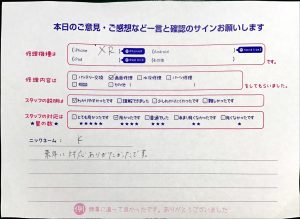 本日のご意見・ご感想など一言と確認のサインお願いします
修理機種は
iPhone XR
Android
iPad
その他
修理内容は
バッテリー交換 画面修理 水没修理 パーツ修理
その他
をしてもらいました。
スタッフの説明は
わかりやすかった 理解できました 少しわかりにくかった 難しかった
スタッフの対応は
とても良かった 良かった 普通でした あまり良くなかった 良くなかった
★星の数★
★★★★★ ★★★★ ★★★ ★★ ★
ニックネーム: K
素早い対応ありがたかったです。
無事に直って良かったです。ありがとうございました